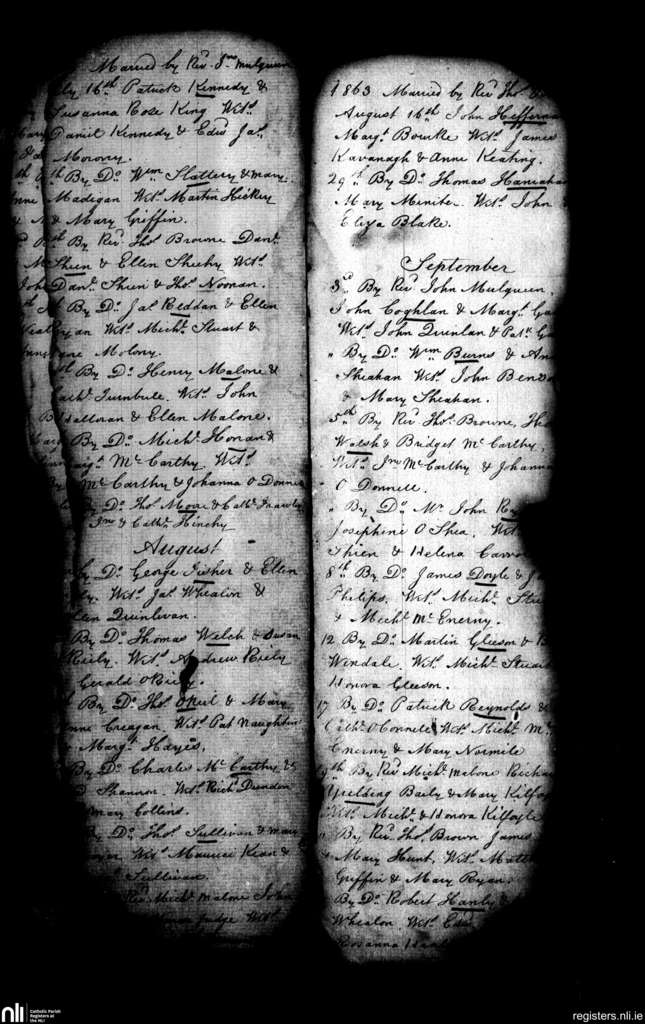 Married by Revd Jno Mulqueen
16th Patrick Kennedy &
Susanna Rose King Wits
Daniel Kennedy & Edwd Jas
Morony.
By Do Wm Slattery & Mary
Madigan Wits Martin Hickey
& Mary Griffin.
By Revd Thos Browne Danl
Sheen & Ellen Sheehy Wits
Danl Sheen & Thos Noonan.
By Do Jas Reddan & Ellen
Ryan Wits Michl Stuart &
Molony.
By Do Henry Malone &
Cathe Turnbule. Wits John
Halloran & Ellen Malone.
By Do Michl Honan &
Margt McCarthy Wits
McCarthy & Johanna O Donnell
By Do Thos Moore & Cathe Frawley
Jno & Cathe Hinchy
August
By Do George Fisher & Ellen
Wits Jas Whealon &
Ellen Quinlivan.
By Do Thomas Welch & Susan
Reily. Wits Andrew Reily
Gerald O'Reily
By Do Thos O'Neil & Mary
Anne Creagan, Wits Pat Naughton
& Margt Hayes.
By Do Charles McCarthy &
Shannon. Wits Richd Dundon
Mary Collins.
By Do Thos Sullivan & Mary
Wits Maurice Kean &
Sullivan.
Revd Michl Malone John
Judge Wits
1863 Married by Revd Thos
August 16th John Heffernan
Margt Bourke Wits James
Kavanagh & Anne Keating.
29th By Do Thomas Hanrahan
Mary Minite. Wits John
Eliza Blake.
September
3rd By Revd John Mulqueen.
John Coghlan & Margt
Wits John Quinlan & Patk
" By Do Wm Burns &
Sheahan Wits John
& Mary Sheahan.
5th By Revd Thos Browne,
Walsh & Bridget McCarthy,
Wits Jno McCarthy & Johanna
O Donnell.
" By Do Mr John
Josephine O Shea. Wits
& Helena
8th By Do James Doyle &
Philips. Wits Michl
& Michl McEnerny.
12 By Do Martin Gleeson &
Wendale. Wits Michl Stuart
Honora Gleeson.
17 By Do Patrick Reynolds &
Cathe O'Connell Wits Michl Mc
Enerny & Mary Normile
By Revd Michl Malone Richard
Yielding Baily & Mary Kilfoyle
Wits Michl & Honora Kilfoyle
" By Revd Thos Brown James
& Mary Hunt, Wits
Griffin & Mary Ryan.
By Do Robert Hanly &
Whealon. Wits Edwd
Rosanna
nli
Catholic Parish
Registers at
the NLI
registers.nli.ie